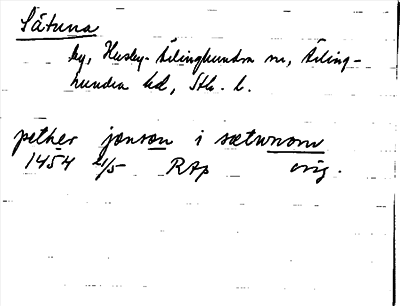 Sätuna
by, Husby-Ärlinghundra sn, Ärling-
hundra hd, Sthlm. l.
pether jonson i sætunom
1454 21/5 RAp orig.